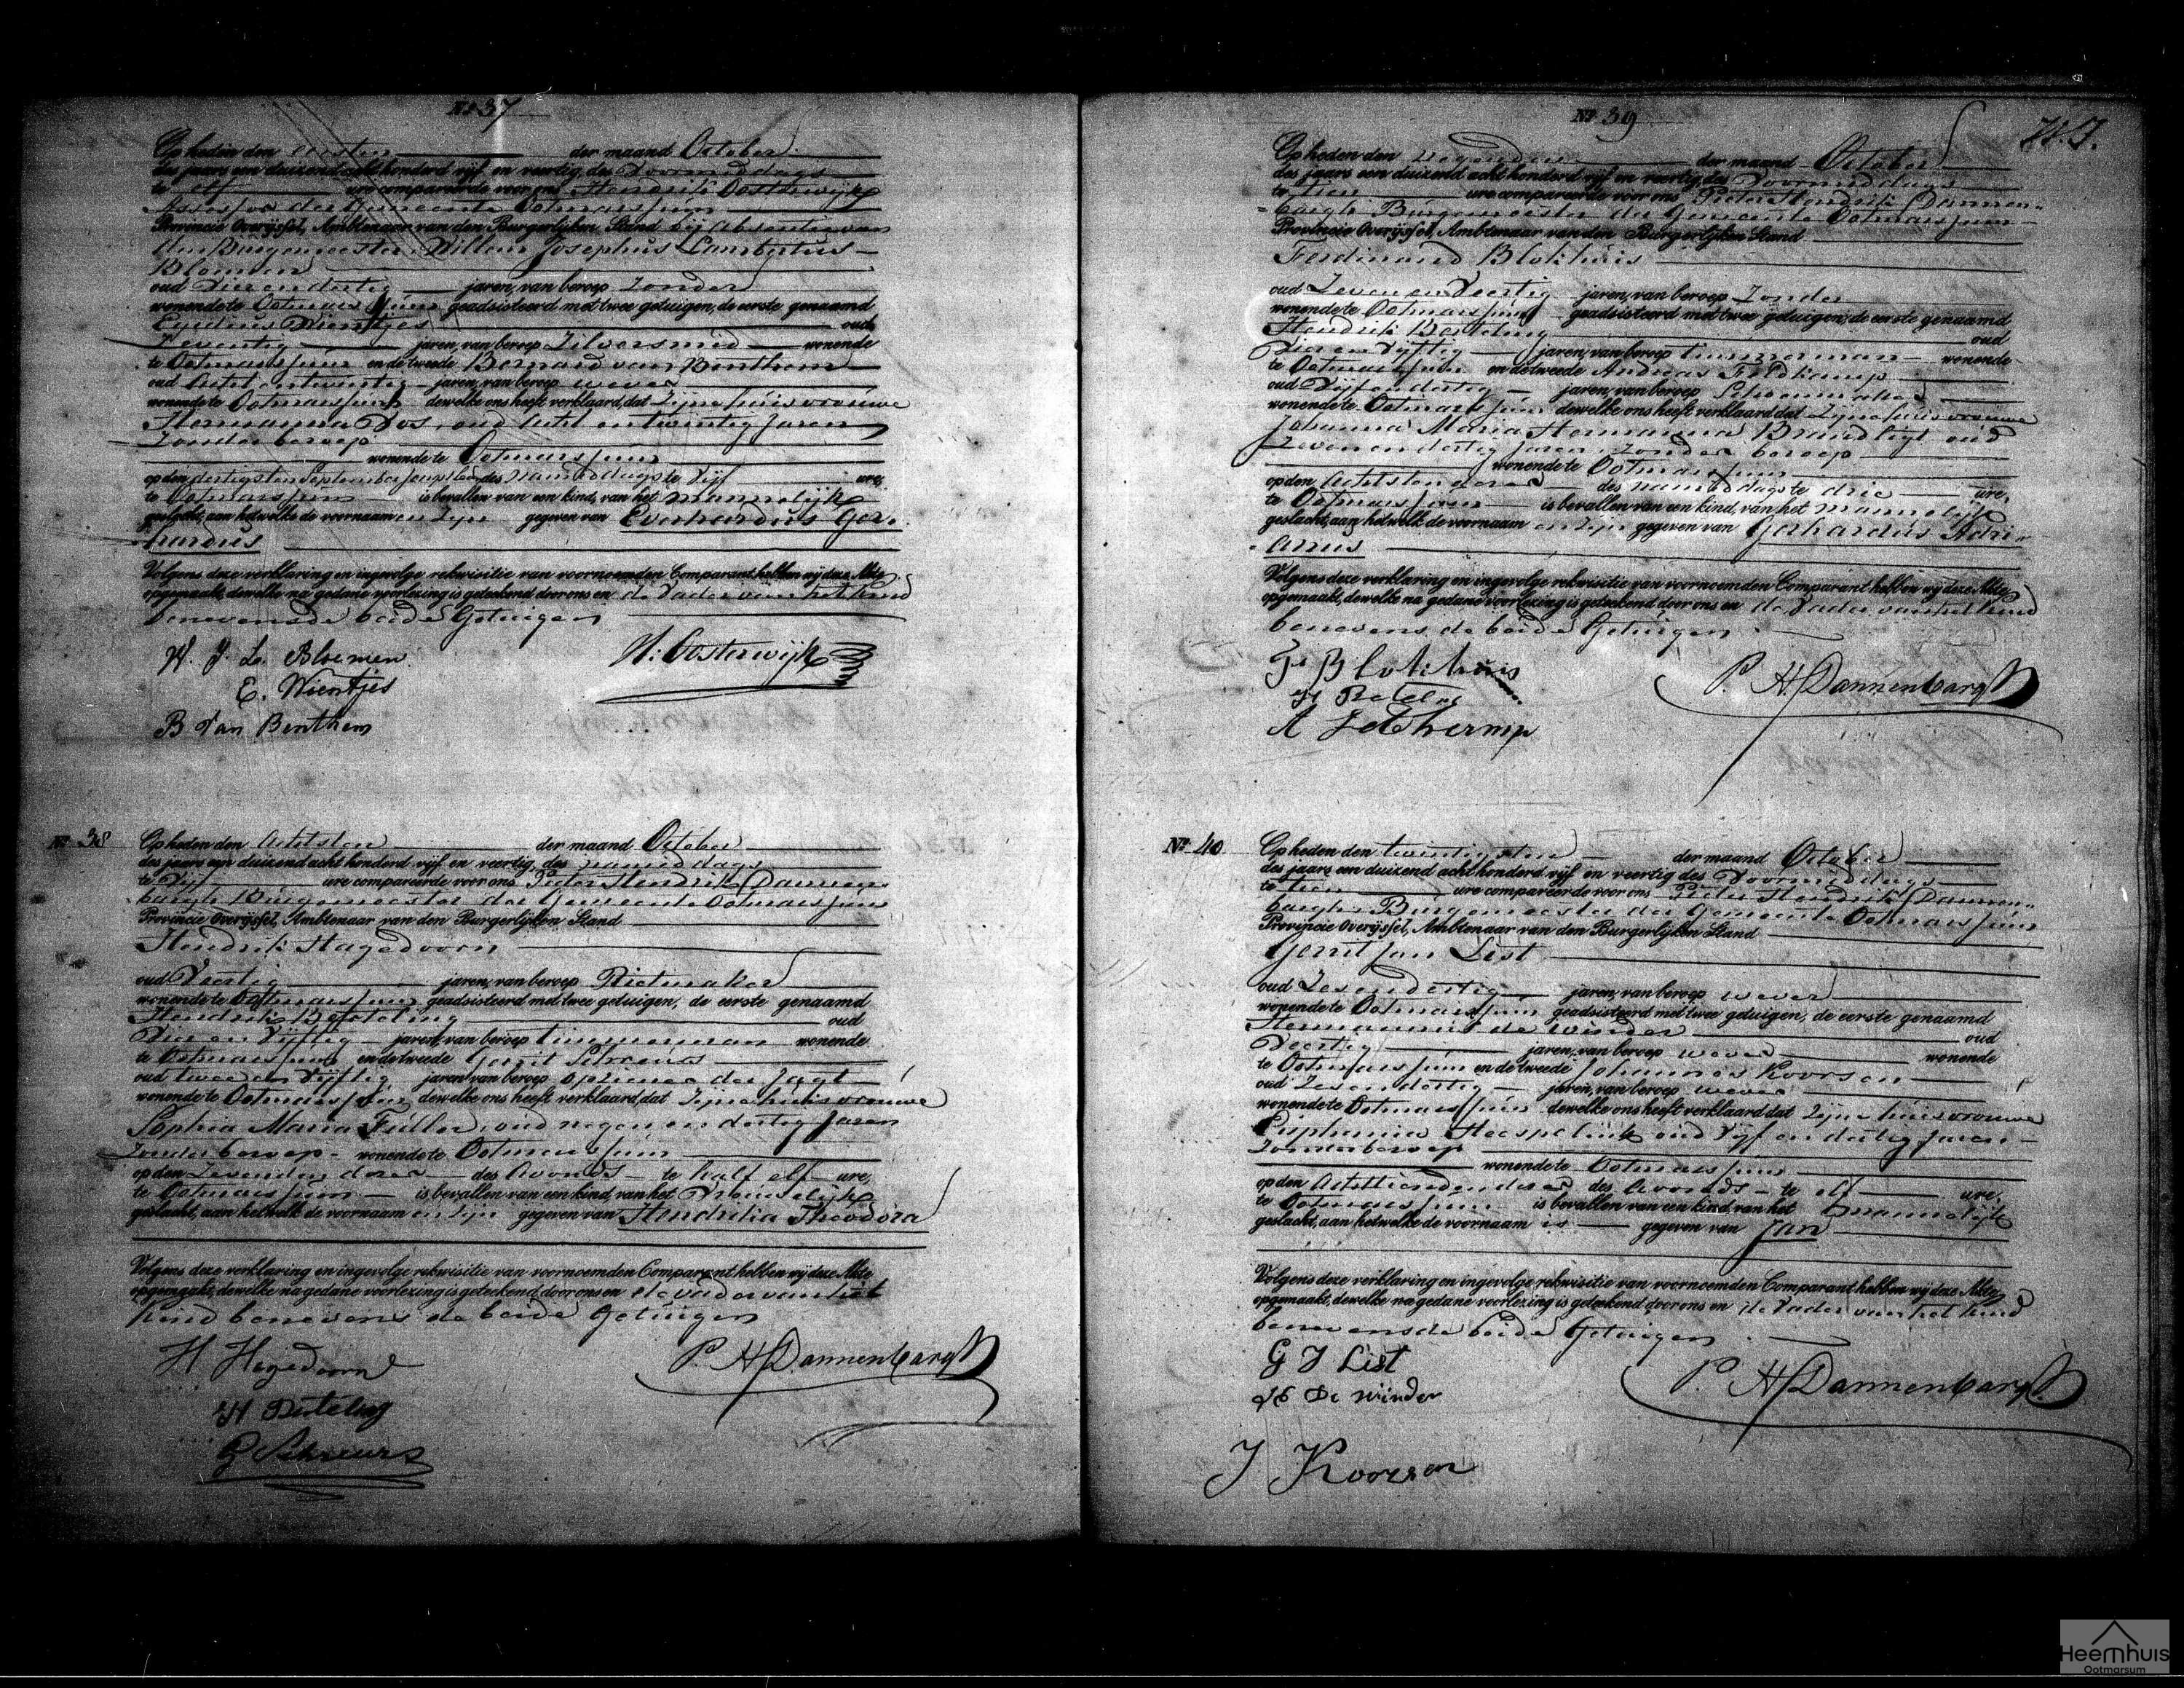 No 37
Op heden den eersten der maand October
des jaars een duizend acht honderd vijf en veertig, des Voormiddags
te elf ure compareerde voor ons Hendrik Oosterwijk
Assessor der Gemeente Ootmarssum
Provincie Overijssel, Ambtenaar van den Burgerlijken Stand bij absentie van
den Burgemeester, Willem Josephus Lambertus
Bloemen
oud Vier en dertig jaren, van beroep Zonder
wonende te Ootmarssum geadsisteerd met twee getuigen, de eerste genaamd
Wientjes oud
Zeventig jaren, van beroep Zilversmid wonende
te Ootmarssum en de tweede Bernard van Benthem
oud acht en twintig jaren, van beroep wever
wonende te Ootmarssum dewelke ons heeft verklaard, dat zijne huisvrouwe
Hermanna Vos, oud acht en twintig jaren
Zonder beroep
wonende te Ootmarssum
op den dertigsten September des namiddags te Vijf ure,
te Ootmarssum is bevallen van een kind, van het mannelijk
geslacht, aan hetwelke de voornaam en zijn gegeven van Everhardus Ger-
hardus
Volgens deze verklaring en ingevolge rekwisitie van voornoemden Comparant hebben wij deze Akte
opgemaakt, dewelke na gedane voorlezing is geteekend door ons en de Vader van het kind
benevens de beide Getuigen
W. J. L. Bloemen H: Oosterwijk
E. Wientjes
B Van Benthem
No 38
Op heden den Achtsten der maand October
des jaars een duizend acht honderd vijf en veertig, des namiddags
te Vijf ure compareerde voor ons Pieter Hendrik Dannen-
bargh Burgemeester der Gemeente Ootmarssum
Provincie Overijssel, Ambtenaar van den Burgerlijken Stand
Hendrik Hagedoorn
oud Veertig jaren, van beroep Rietmaker
wonende te Ootmarssum geadsisteerd met twee getuigen, de eerste genaamd
Hendrik Besteling oud
Vier en Vijftig jaren, van beroep timmerman wonende
te Ootmarssum en de tweede Gerrit Schreurs
oud twee en Vijftig jaren van beroep opziener der Jagt
wonende te Ootmarssum dewelke ons heeft verklaard, dat zijne huisvrouwe
Sophia Maria Füller, oud negen en dertig jaren
Zonder beroep wonende te Ootmarssum
op den Zevenden dezer des Avonds te half elf ure,
te Ootmarssum is bevallen van een kind, van het Vrouwelijk
geslacht, aan hetwelk de voornaam en zijn gegeven van Hendrika Theodora
Volgens deze verklaring en ingevolge rekwisitie van voornoemden Comparant hebben wij deze Akte
opgemaakt, dewelke na gedane voorlezing is geteekend door ons en de vader van het
kind benevens de beide Getuigen
H Hagedoorn P. H. Dannenbargh
H Besteling
G Schreurs
No 39
Op heden den negenden der maand October
des jaars een duizend acht honderd vijf en veertig des Voormiddags
te tien ure compareerde voor ons Pieter Hendrik Dannen-
bargh Burgemeester der Gemeente Ootmarssum
Provincie Overijssel, Ambtenaar van den Burgerlijken Stand
Ferdinand Blokhuis
oud Zeven en Veertig jaren, van beroep Zonder
wonende te Ootmarssum geadsisteerd met twee getuigen, de eerste genaamd
Hendrik Besteling oud
Vier en Vijftig jaren, van beroep timmerman wonende
te Ootmarssum en de tweede Andreas Feldkamp
oud Vijf en dertig jaren, van beroep Schoenmaker
wonende te Ootmarssum dewelke ons heeft verklaard dat zijne huisvrouwe
Johanna Maria Hermanna Brandligt oud
Zeven en dertig jaren Zonder beroep
wonende te Ootmarssum
op den Achtsten dezer des namiddags te drie ure,
te Ootmarssum is bevallen van een kind, van het mannelijk
geslacht, aan hetwelk de voornaam en zijn gegeven van Gerhardus Adri-
anus
Volgens deze verklaring en ingevolge rekwisitie van voornoemden Comparant hebben wij deze Akte
opgemaakt, dewelke na gedane voorlezing is geteekend door ons en de Vader van het kind
benevens de beide Getuigen
F Blokhuis P. H. Dannenbargh
No 40
Op heden den twintigsten der maand October
des jaars een duizend acht honderd vijf en veertig des Voormiddags
te tien ure compareerde voor ons Pieter Hendrik Dannen-
bargh Burgemeester der Gemeente Ootmarssum
Provincie Overijssel, Ambtenaar van den Burgerlijken Stand
Gerrit Jan List
oud Zes en dertig jaren, van beroep wever
wonende te Ootmarssum geadsisteerd met twee getuigen, de eerste genaamd
Hermannus de Winder oud
Veertig jaren, van beroep wever wonende
te Ootmarssum en de tweede Johannes Koorsen
oud Zes en dertig jaren, van beroep wever
wonende te Ootmarssum dewelke ons heeft verklaard dat zijne huisvrouwe
Euphemia Heespelink oud Vijf en dertig jaren
Zonder beroep
wonende te Ootmarssum
op den Achttienden dezer des Avonds te elf ure,
te Ootmarssum is bevallen van een kind, van het mannelijk
geslacht, aan hetwelke de voornaam is gegeven van Jan
Volgens deze verklaring en ingevolge rekwisitie van voornoemden Comparant hebben wij deze Akte
opgemaakt, dewelke na gedane voorlezing is geteekend door ons en de Vader van het kind
benevens de beide Getuigen
G J List P. H. Dannenbargh
H De Winder
J Koorsen
Heemhuis
Ootmarsum